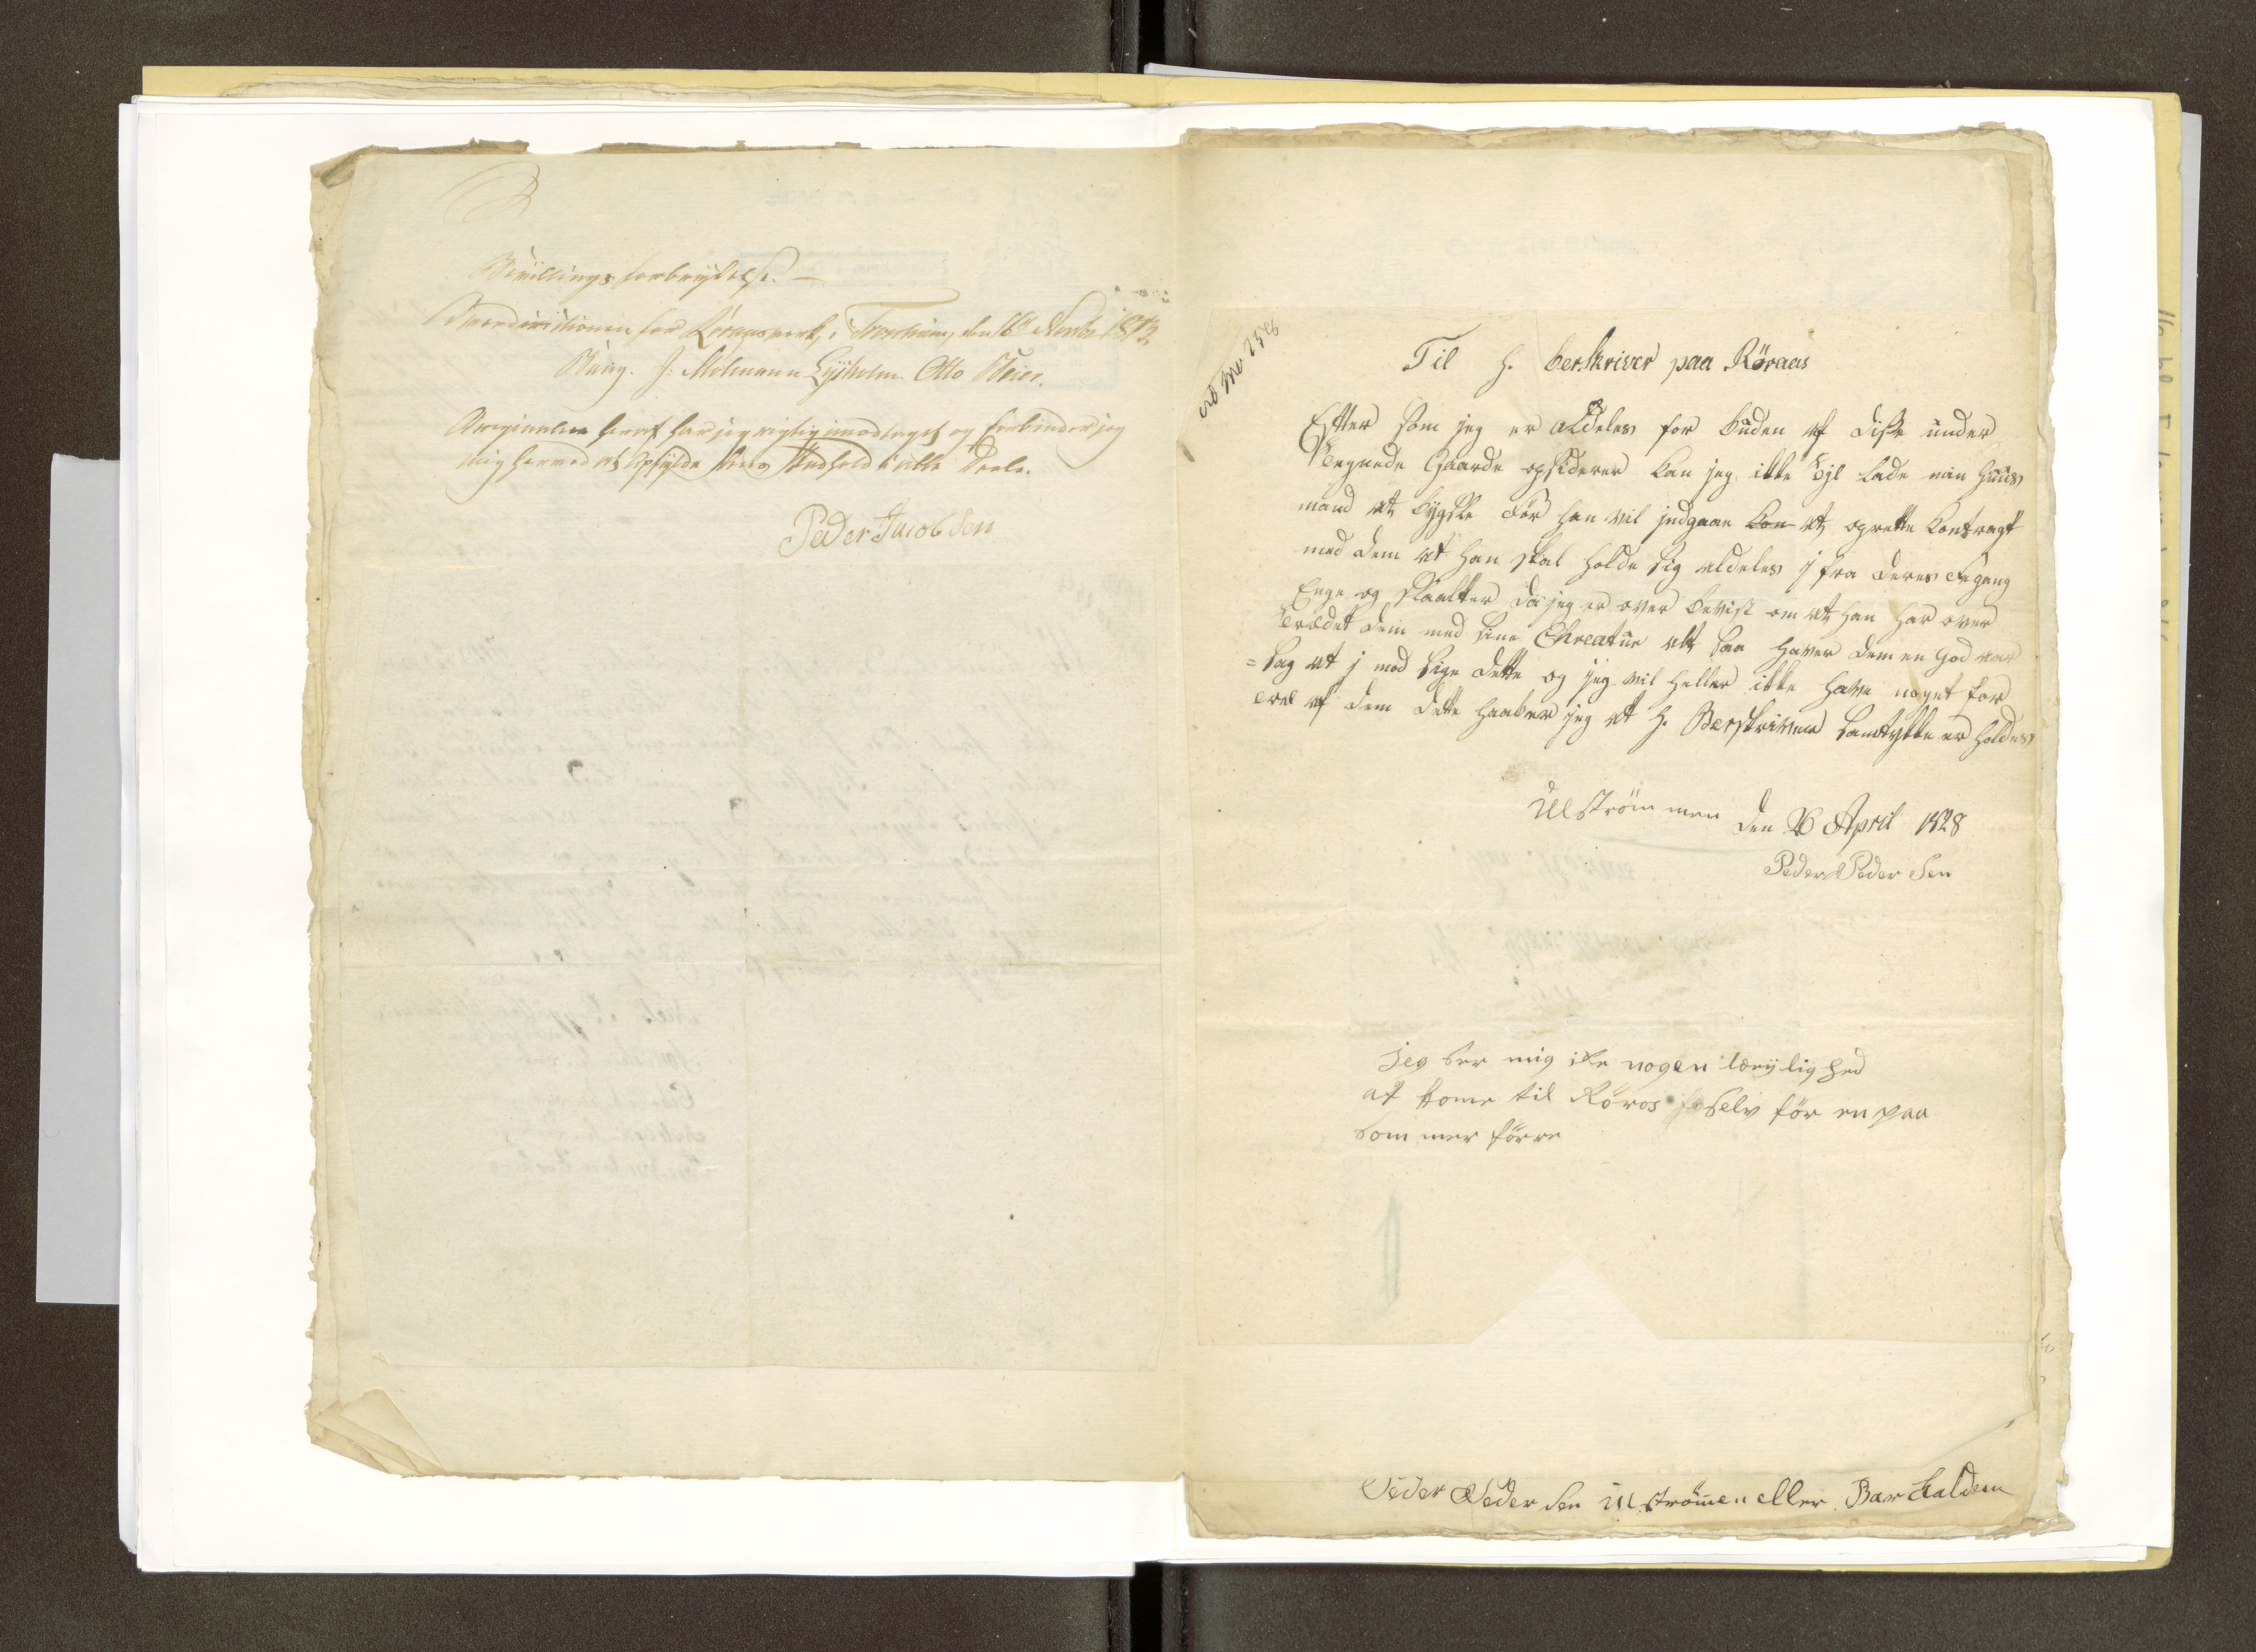 Bevillings forbrydelse. —
Participant­Directionen for Röraasværk, i Trondhiem, den 16de Novbr 1812
J. Mølmann Lysholm. Otto Beier.
Originalen heraf har jeg rigtig imodtaget og forbinder jeg
mig hermed at Opfylde dens Indhold i alle Deele.
Peder Jacobsen
Til H. berskriver paa Röraas
Efter som jeg er aldeles for buden af diße under
Tegnede Gaarde opsiderer kan jeg ikke lade min Huus
mand at bygsle før han vil indgaae Con at oprette Contragt
med dem at han skal holde sig aldeles i fra deres
Enge og Slaatter da jeg er over bevist om at han har over
Trædet dem med sine Chreatur alt saa haver dem en God
=sag at i mod sige dette og jeg vil heller ikke have noget for
Træ af dem dette haaber jeg at H. Berskriver samtykke er holdes
Ulströmmen den 26 April 1828
Peder Peder Sen
Jeg ser mig ike nogen leeylighed
at kome til Röros selv för en paa
Sommer förre
Peder Peder Sen Ulströmen eller Bar haldem